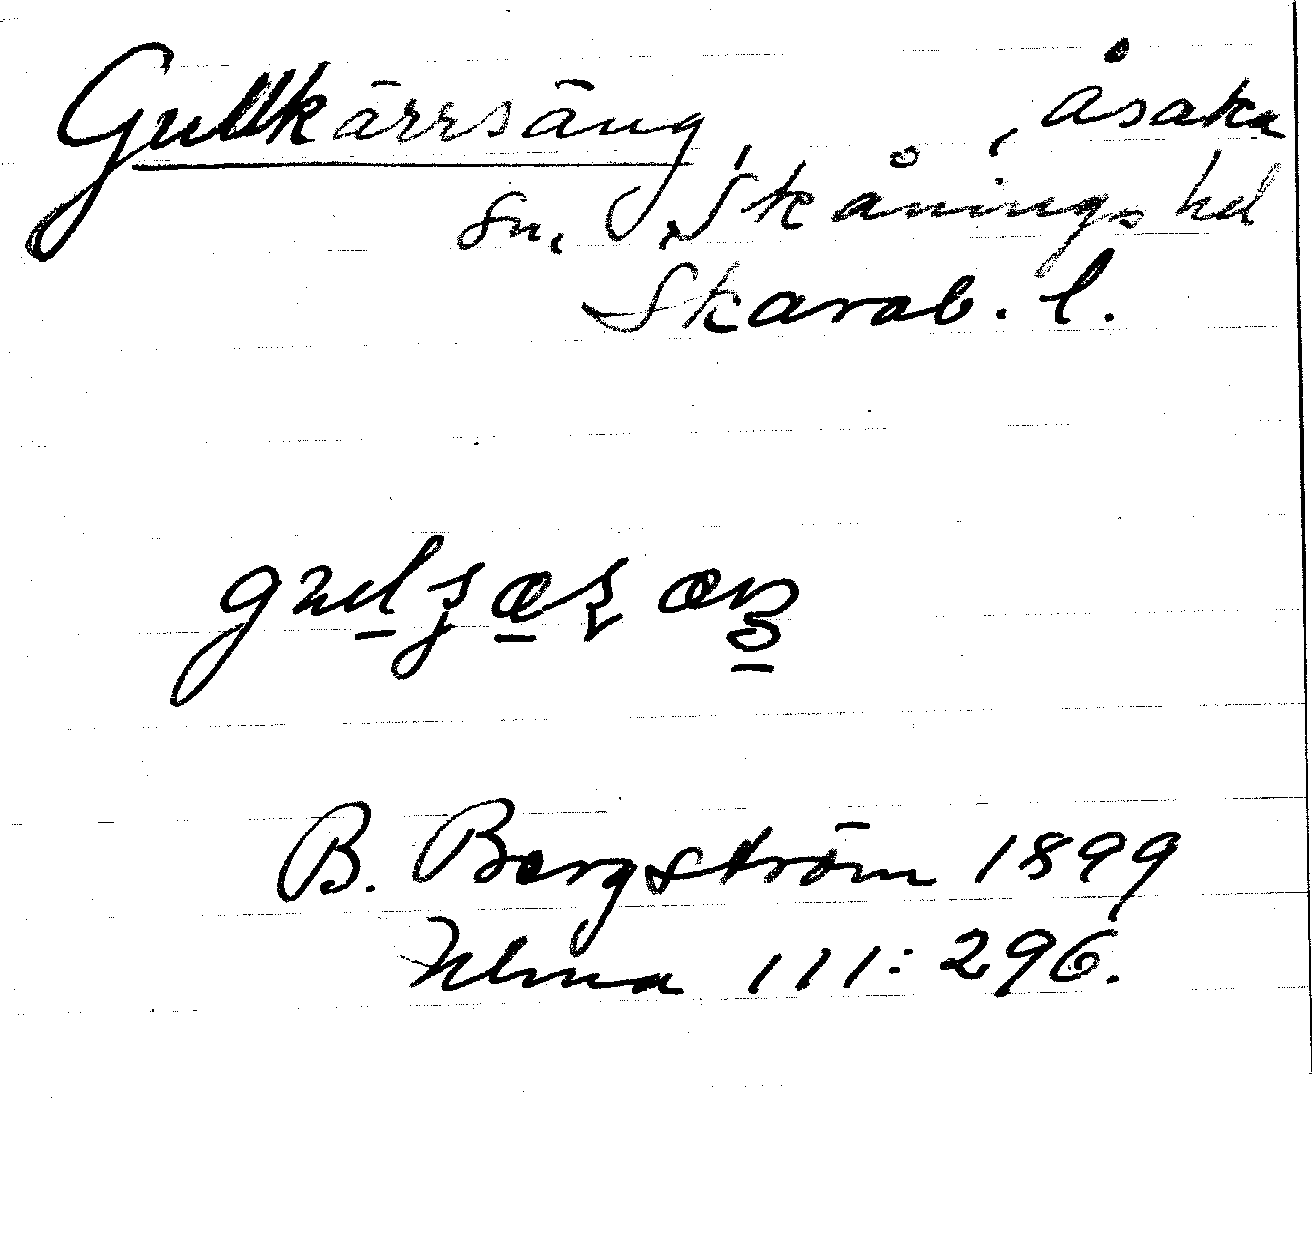 Gullkärrsäng, Åsaka
sn, Skånings hd
Skarab. l.
B. Bergström 1899
111: 296.